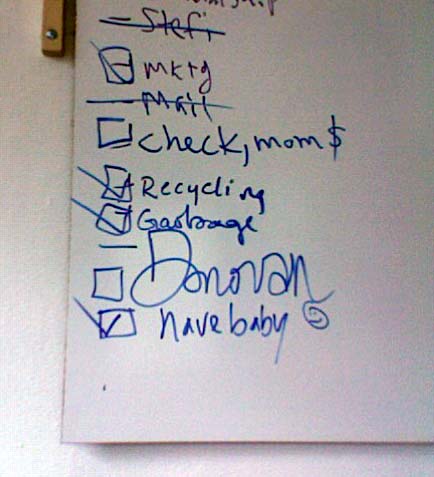 Stefi
mktg
Mail
check, mom $
Recycling
Garbage
Donovan
have baby ☺